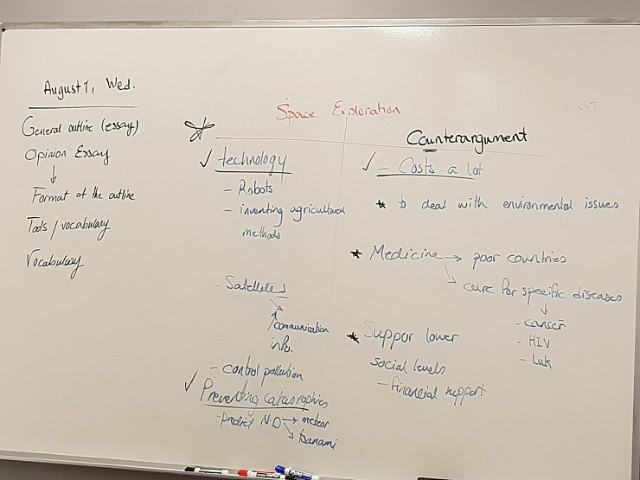 August 1, Wed.
General outline (essay)
Opinion Essay
↓
Format of the outline
Tools / vocabulary
Vocabulary
Space Exploration
✓ technology
- Robots
- inventing agricultural
methods
- Satellites
communication
info.
- control pollution
✓ Preventing catastrophies
- predict N.D → meteor
→ tsunami
Counterargument
✓ - Costs a lot
* to deal with environmental issues
* Medicine → poor countries
→ cure for specific diseases
↓
- cancer
- HIV
* Suppor lower
social levels
- financial support